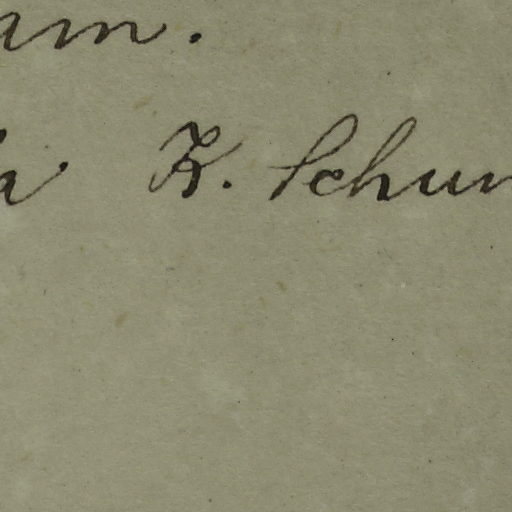 am.
a K. Schum